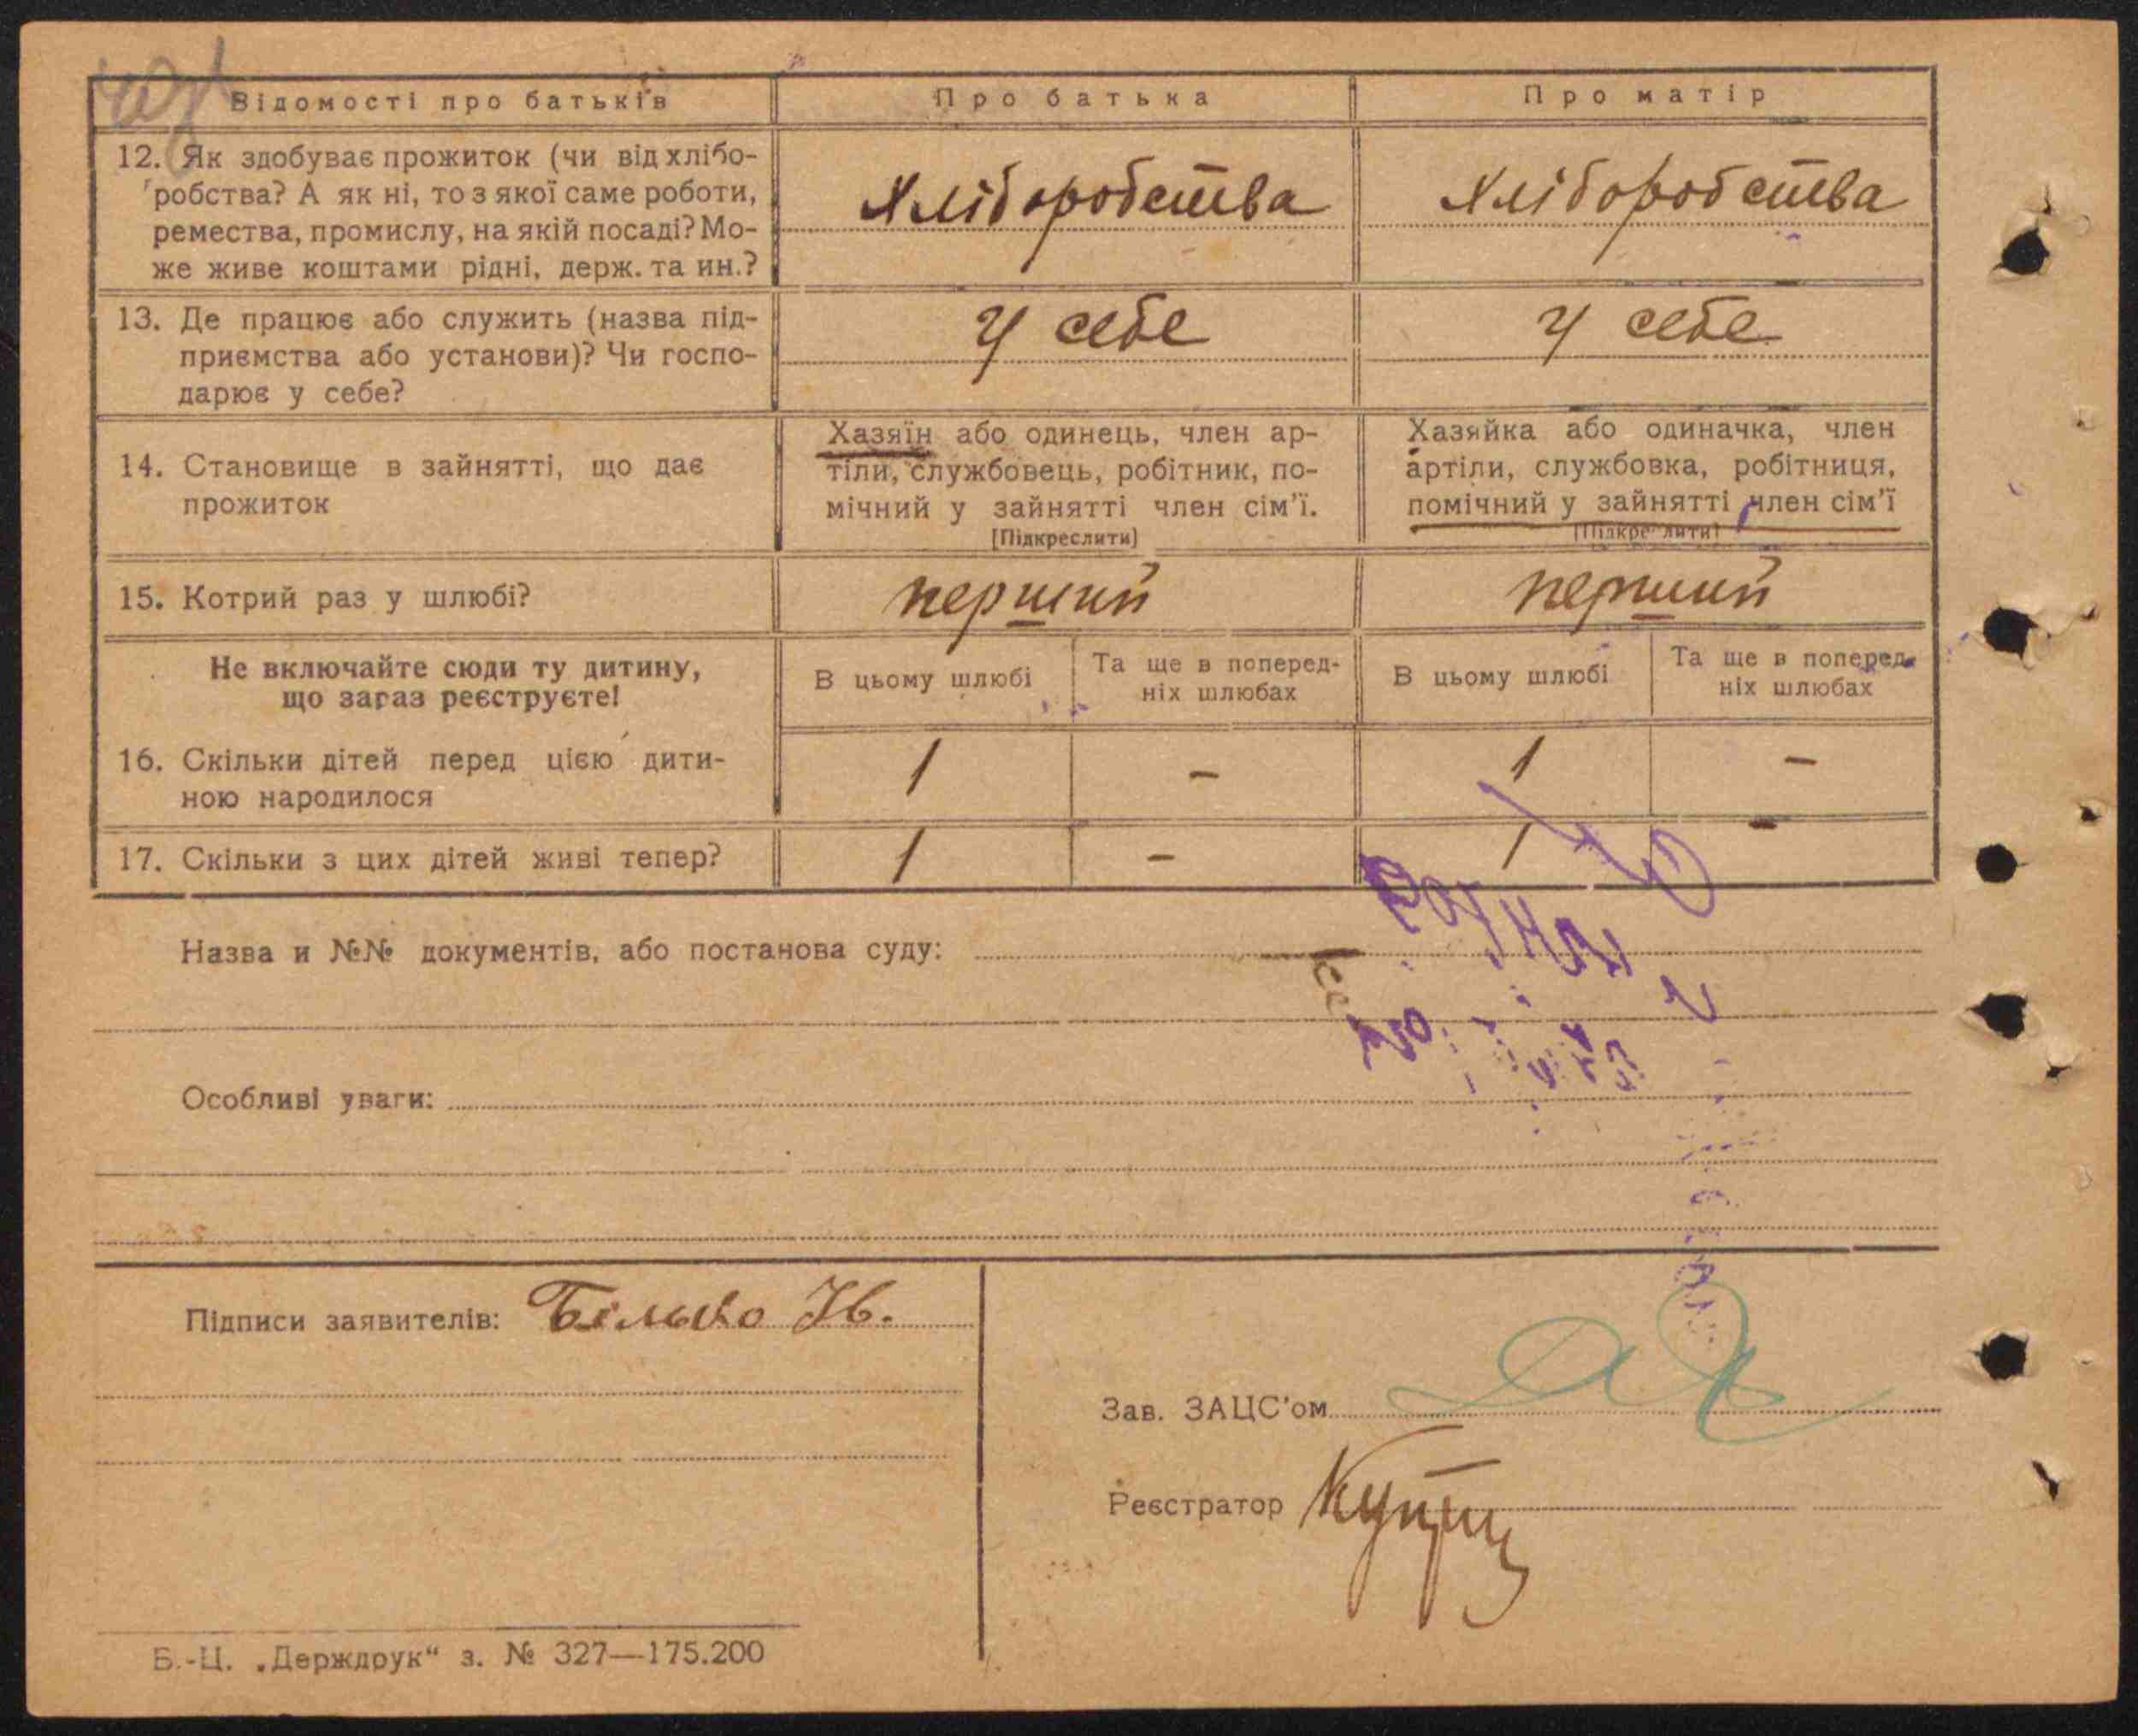 Відомості про батьків Про батька Про матір
12. Як здобуває прожиток (чи від хлібо-
робства? А як ні, то з якої саме роботи,
ремества, промислу, на якій посаді? Мо-
же живе коштами рідні, держ. та ин.?
Хліборобства Хліборобства
13. Де працює або служить (назва під-
приємства або установи)? Чи госпо-
дарює у себе?
У себе У себе
14. Становище в зайнятті, що дає
прожиток
Хазяїн або одинець, член ар-
тіли, службовець, робітник, по-
мічний у зайнятті член сім'ї.
[Підкреслити]
Хазяйка або одиначка, член
артіли, службовка, робітниця,
помічний у зайнятті член сім'ї
[Підкреслити]
15. Котрий раз у шлюбі? перший перший
Не включайте сюди ту дитину,
що зараз реєструєте!
В цьому шлюбі
Та ще в поперед-
ніх шлюбах
В цьому шлюбі
Та ще в поперед-
ніх шлюбах
16. Скільки дітей перед цією дити-
ною народилося
1 - 1 -
17. Скільки з цих дітей живі тепер? 1 - 1 -
Назва и №№ документів, або постанова суду:
Особливі уваги:
Підписи заявителів: Білько Ів.
Зав. ЗАЦС'ом
Реєстратор
Б.-Ц. „Держдрук“ з. № 327—175.200